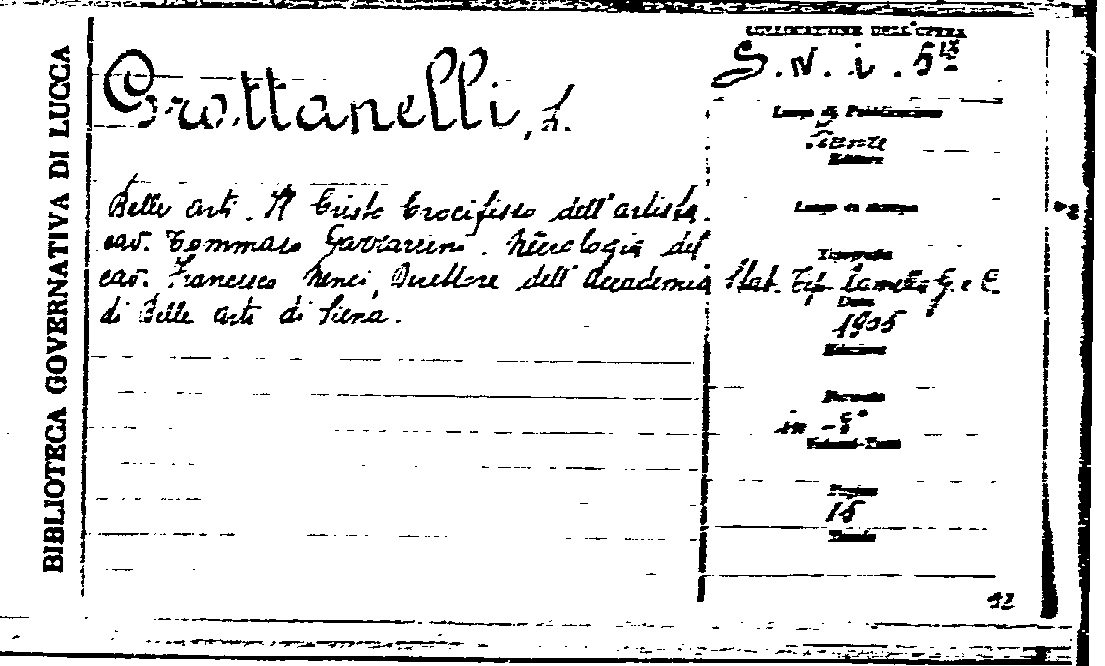 BIBLIOTECA GOVERNATIVA DI LUCCA
Grottanelli, L.
Belle Arti. Il Cristo Crocifisso dell'artista
cav. Tommaso Necrologia del
cav. Francesco Nenci, Direttore dell'Accademia
di Belle Arti di Siena.
COLLOCAZIONE DELL'OPERA
Luogo di Pubblicazione
Firenze
Editore
Luogo di stampa
Tipografia
Stab. Tip. G. e C.
Data
1905
Edizione
Formato
in - 8°
Volumi-Tomi
Pagine
15
Tavole
42